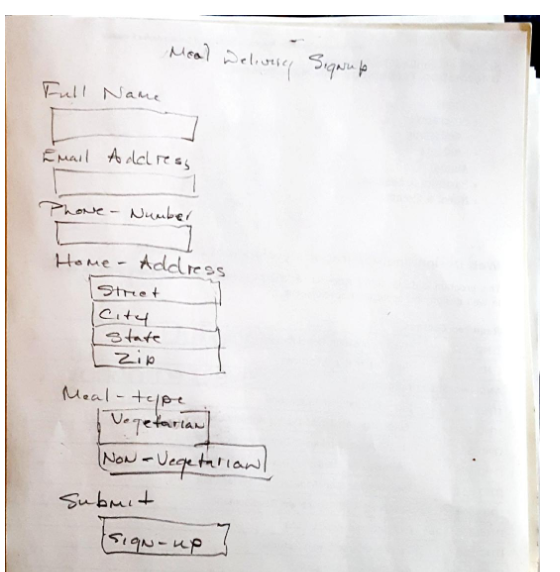 Meal Delivery Signup
Full Name
Email Address
Phone - Number
Home - Address
Street
City
State
Zip
Meal - type
Vegetarian
Non - Vegetarian
Submit
Sign - up